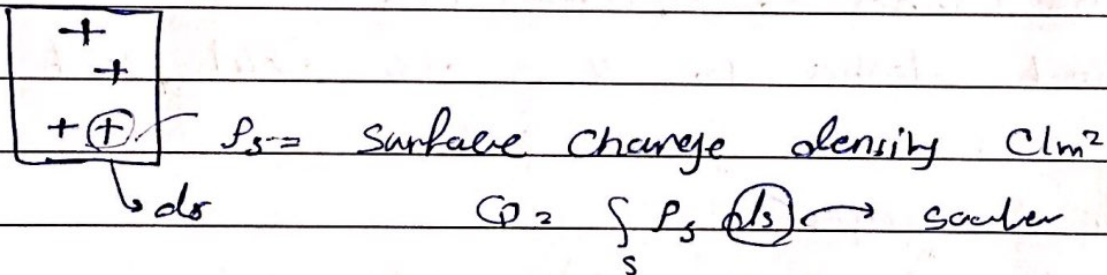 +
+
+ + ρs = Surface Charge density C/m²
ds Q = ∫s ρs ds → scalar